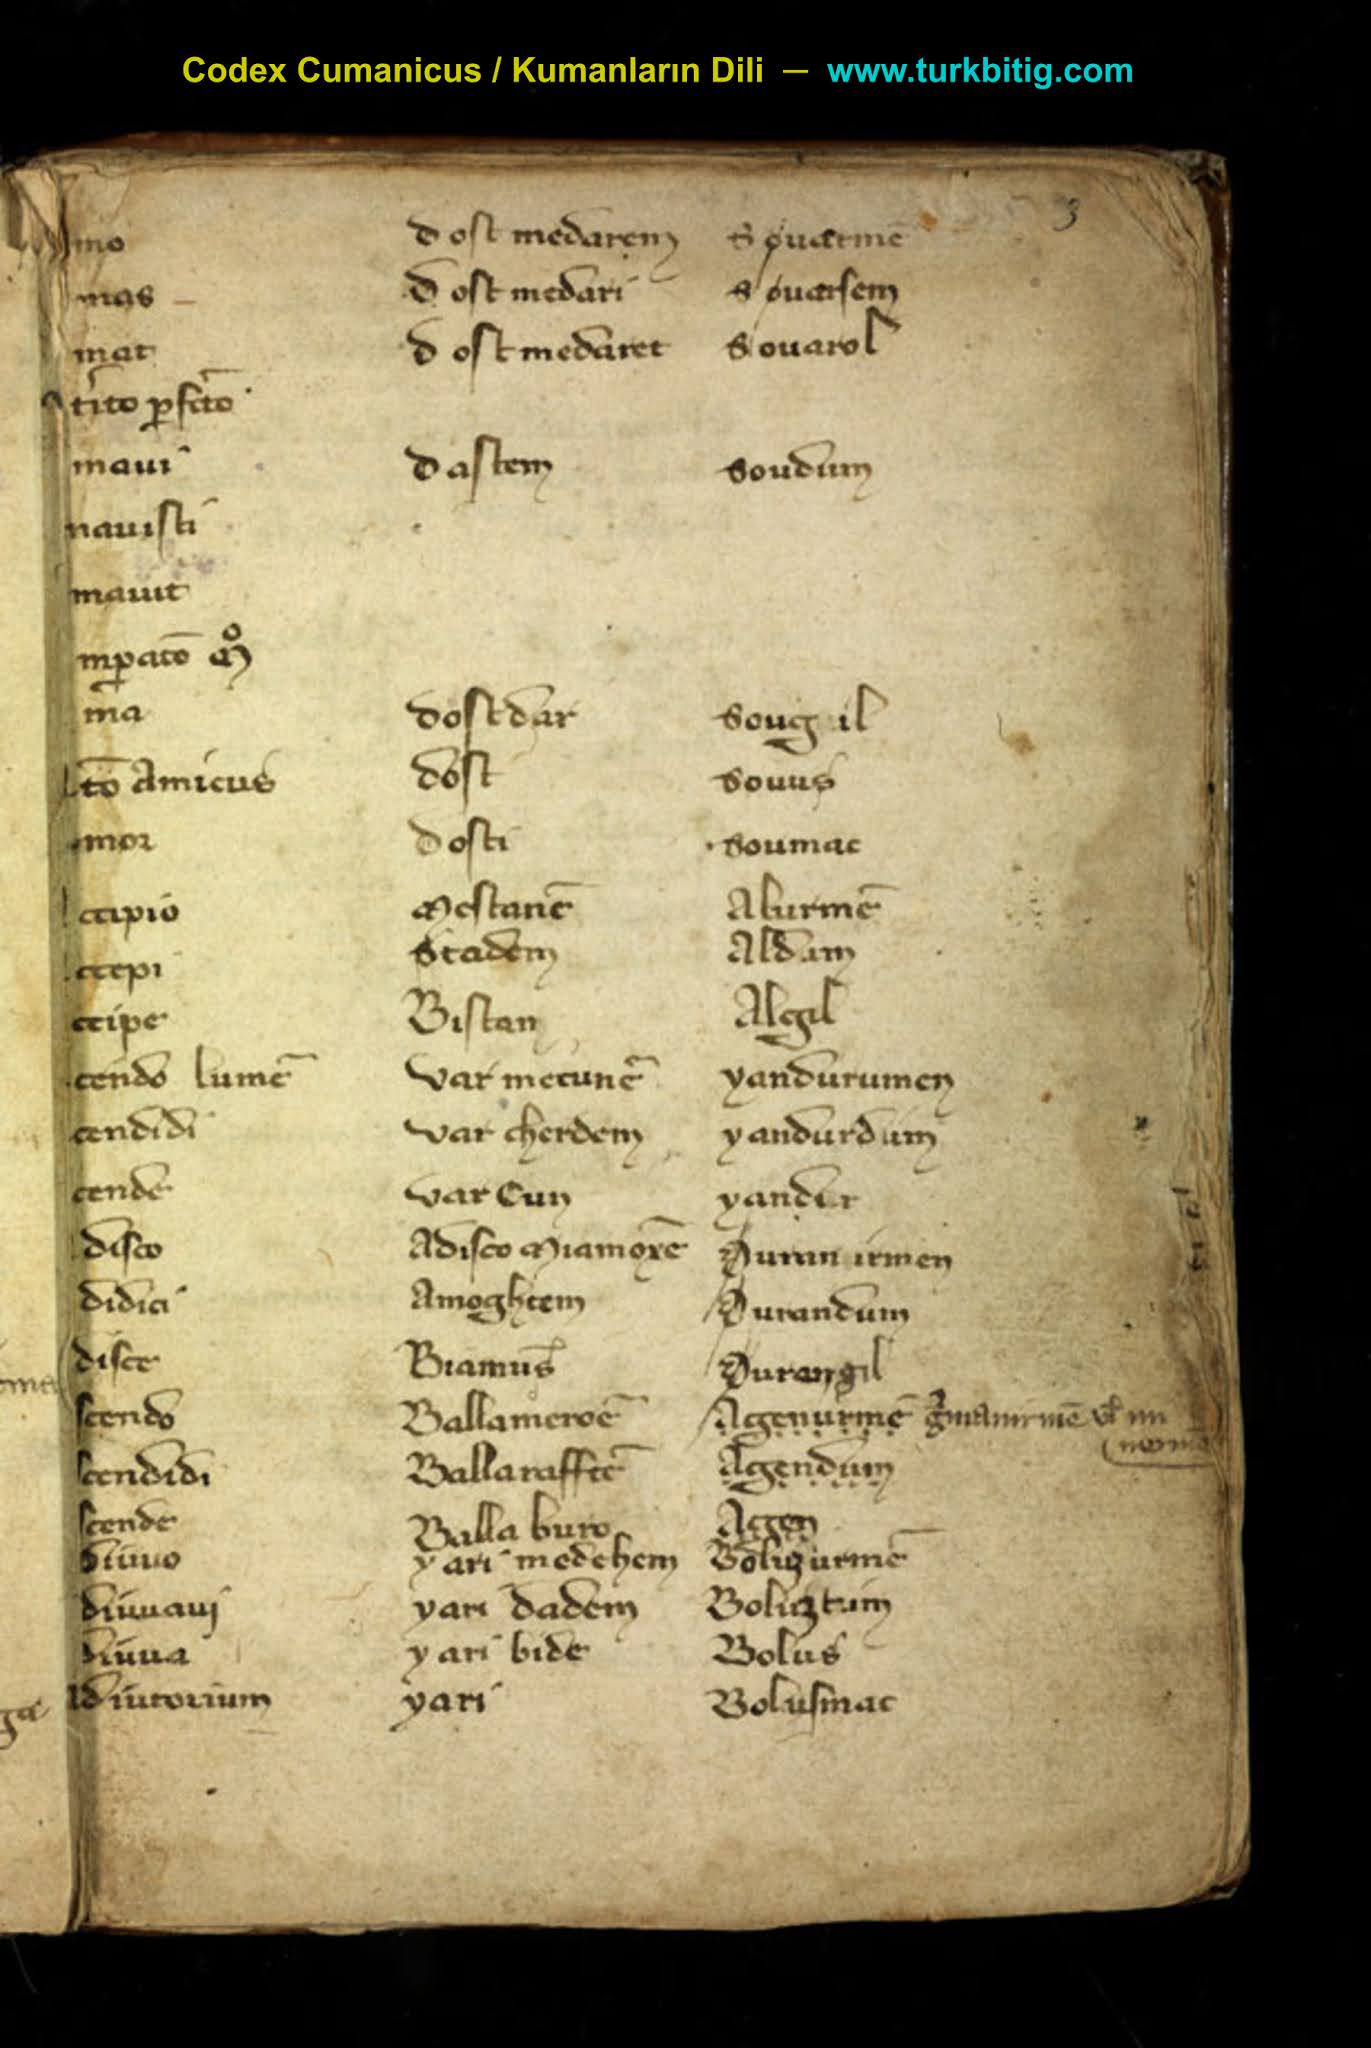 Codex Cumanicus / Kumanların Dili — www.turkbitig.com
3
mo dost medarem souarmē
mas dost medari souarsem
mat dost medaret souarol
maui dastem soudum
nauisti
mauit
ma dostdar sougil
Amicus dost souus
mor dosti soumac
ccipio mestanē Alurmē
ccepi stadem Aldum
ccipe Bistan Algil
cendo lumē var mecunē yandurumen
cendidi var cherdem yandurdum
cende var cun yandur
disco Adisco miamoxē
didici Amoghtem Ourandum
disce Biamus Ourangil
scendo Ballameroē Agenurmē
scendidi Ballarafftē Agendum
scende Balla buro Agen
diuuo yari medehem Boluzurmē
diuuaui yari dadem Boluztum
diuua yari bide Bolus
adiutorium yari Bolusmac